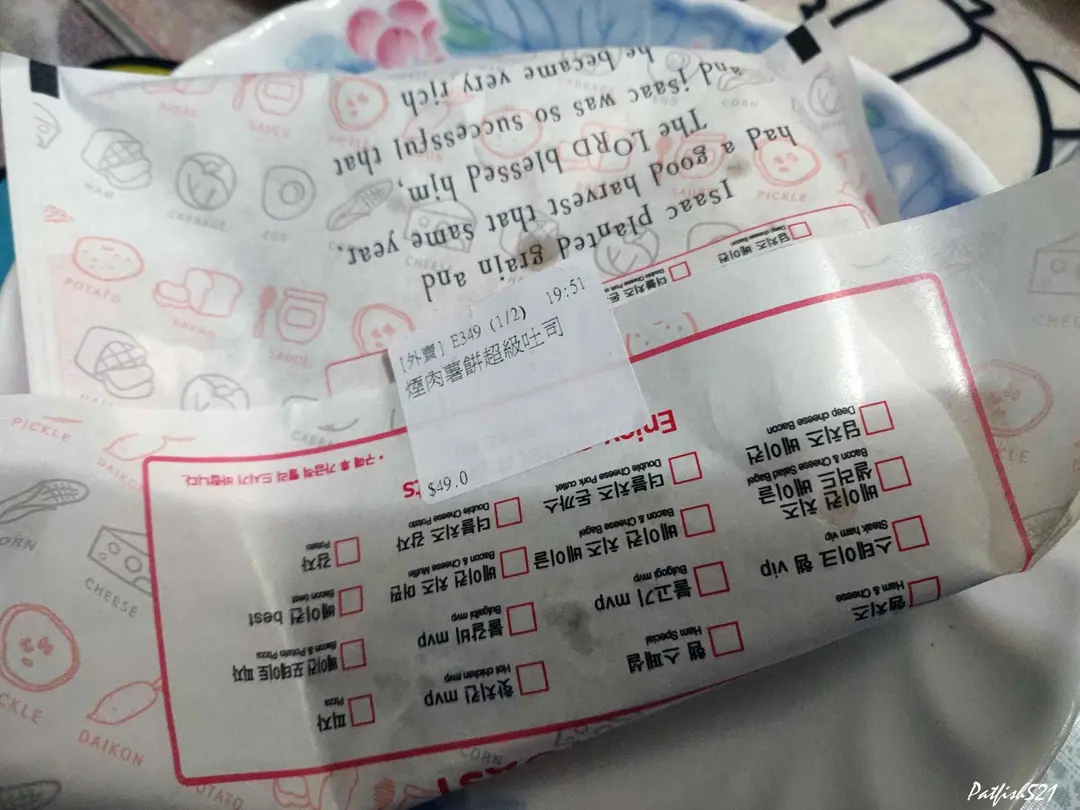 Isaac planted grain and
had a good harvest that same year.
The LORD blessed him,
and isaac was so successful that
he became very rich
BREAD
SAUCE
EGG
CORN
HAM
CABBAGE
EGG
CHEESE
PICKLE
POTATO
BREAD
SAUCE
딥치즈 베이컨
Deep cheese Bacon
더블치즈 돈
[外賣] E349 (1/2) 19:51
煙肉薯餅超級吐司
$49.0
Enjoy
• 구매 후 가급적 빨리 드시기 바랍니다.
햄치즈
Ham & Cheese
스테이크 햄 vip
Steak ham vip
베이컨 치즈
샐러드 베이글
Bacon & Cheese Salad Bagel
딥치즈 베이컨
Deep cheese Bacon
햄 스페셜
Ham Special
불고기 mvp
Bulgogi mvp
베이컨 치즈 베이글
Bacon & Cheese Bagel
더블치즈 돈까스
Double Cheese Pork cutlet
핫치킨 mvp
Hot chicken mvp
불갈비 mvp
Bulgalbi mvp
베이컨 치즈 머핀
Bacon & Cheese Muffin
더블치즈 감자
Double Cheese Potato
피자
Pizza
베이컨 포테이토 피자
Bacon & Potato Pizza
베이컨 best
Bacon best
감자
Potato
PICKLE
CORN
CHEESE
PICKLE
DAIKON
POTATO
CORN
CHEESE
Patfish521